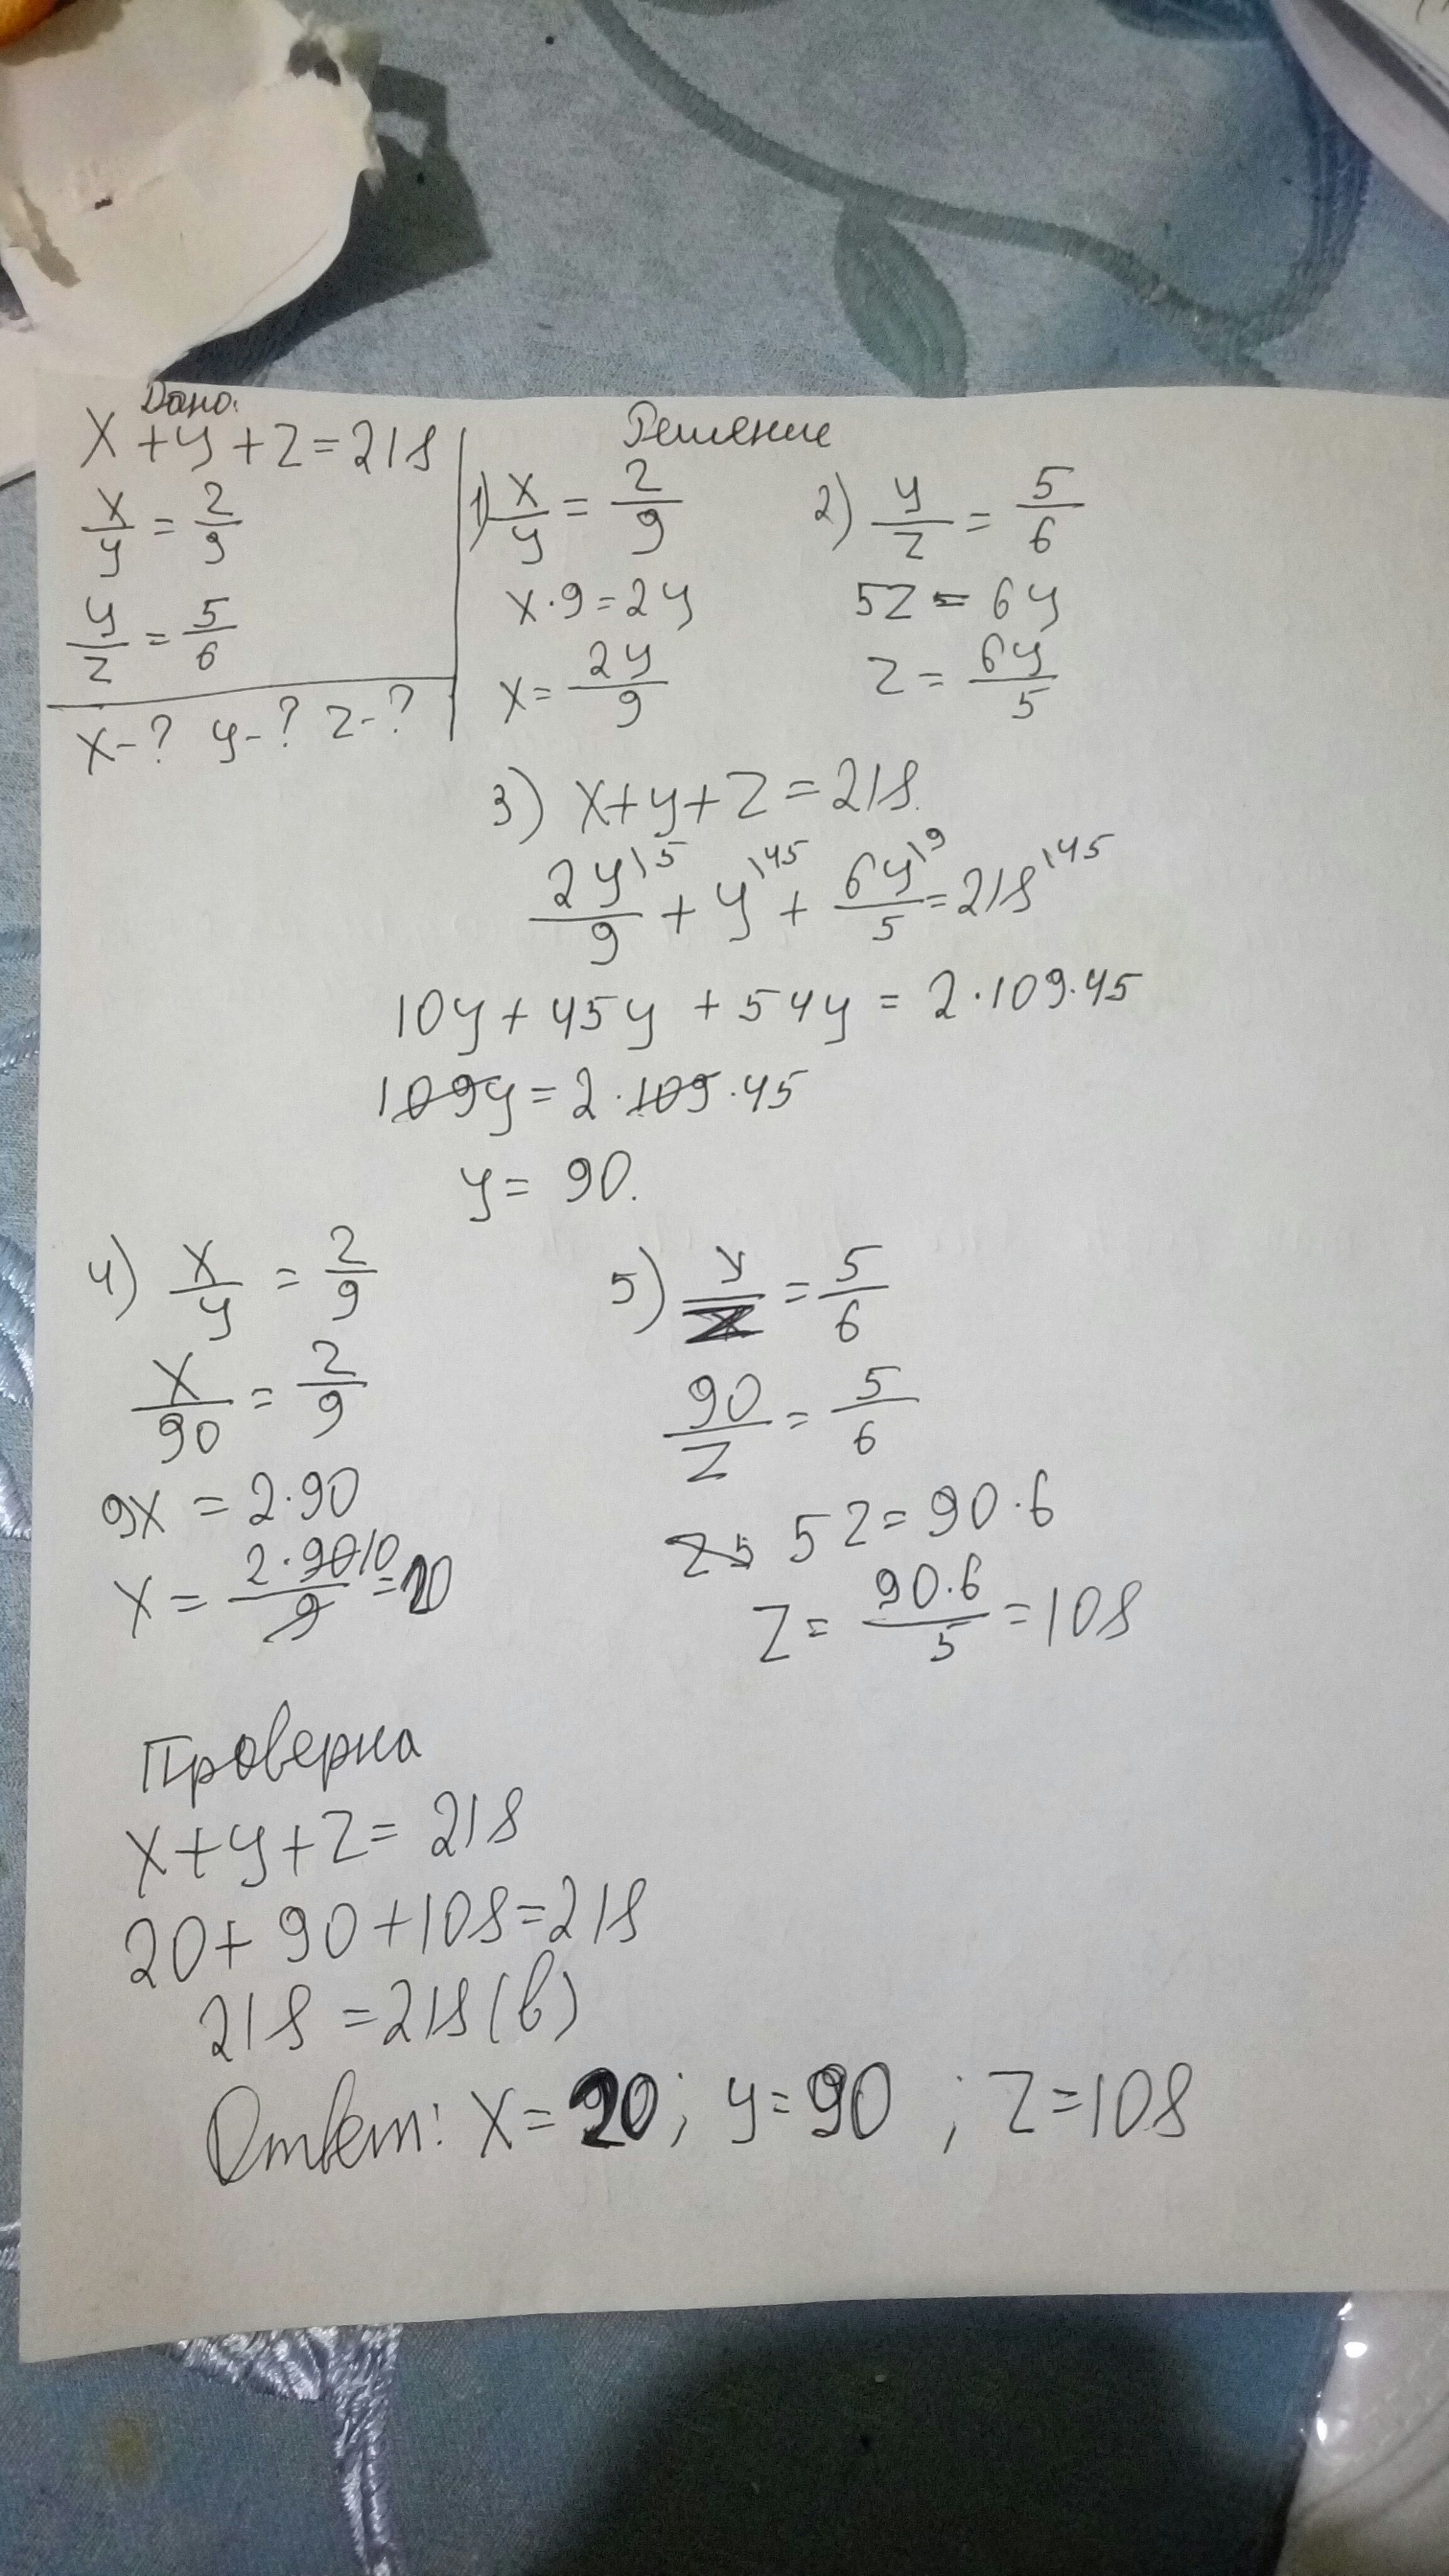 Дано:
x+y+z=218
x/y = 2/9
y/z = 5/6
x-? y-? z-?
Решение
1) x/y = 2/9
x·9=2y
x= 2y/9
2) y/z = 5/6
5z = 6y
z = 6y/5
3) x+y+z=218.
2y\5/9 + y\45 + 6y\9/5 = 218\45
10y+45y+54y = 2·109·45
109y = 2·109·45
y = 90.
4) x/y = 2/9
x/90 = 2/9
9x = 2·90
x = 2·90 10/9 = 20
5) y/z = 5/6
90/z = 5/6
5z=90·6
z= 90·6/5 =108
Проверка
x+y+z= 218
20+90+108=218
218 =218(в)
Ответ: x=20; y=90 ; z=108